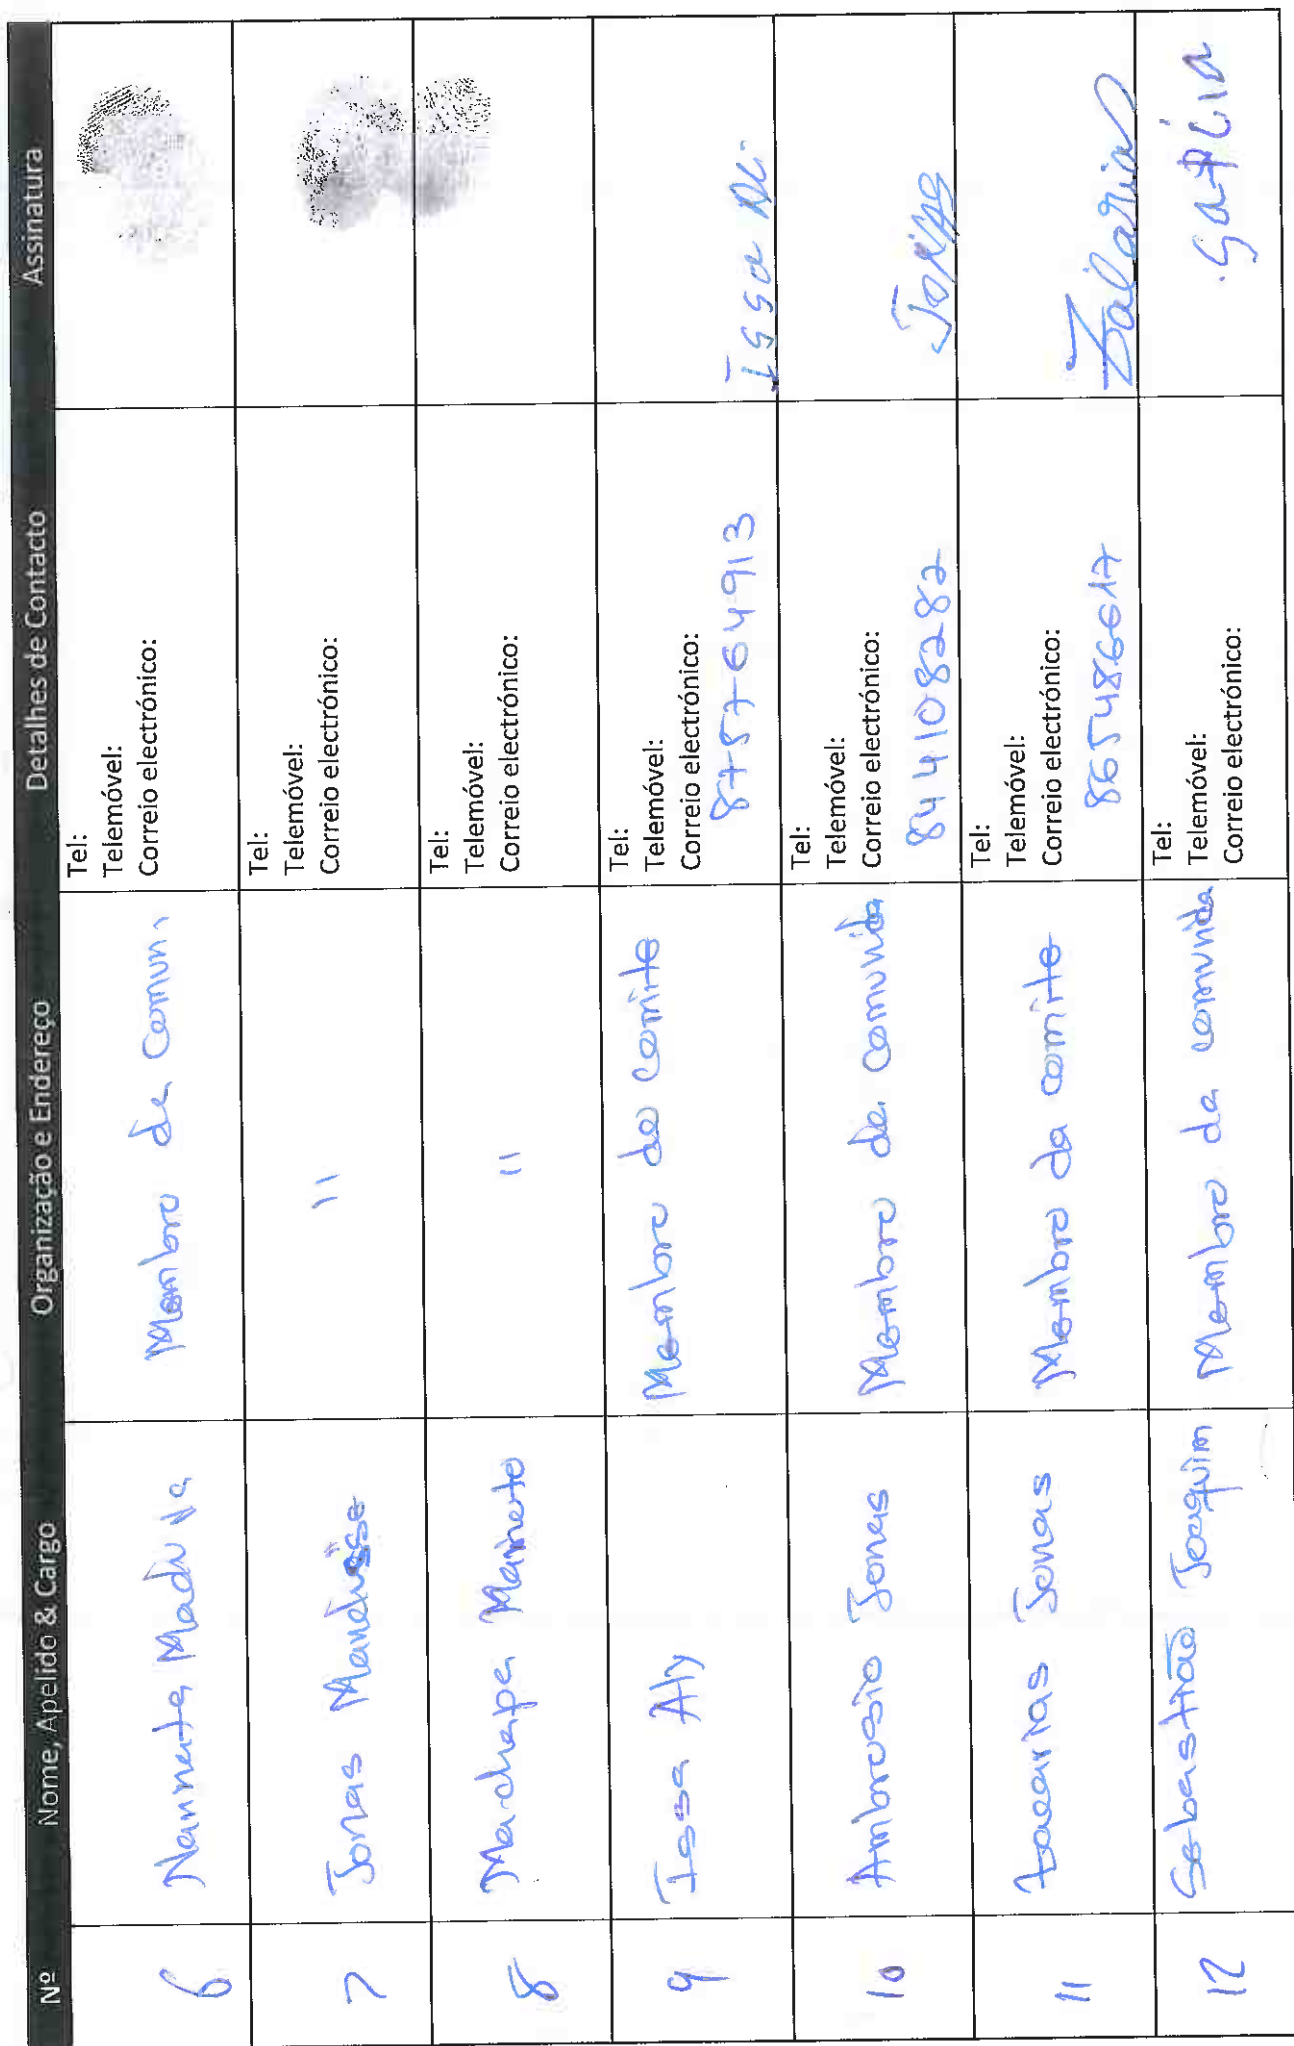 Nº Nome, Apelido & Cargo Organização e Endereço Detalhes de Contacto Assinatura
6 Membro da Comun,
Tel:
Telemóvel:
Correio electrónico:
7 Jonas Manduisse 11
Tel:
Telemóvel:
Correio electrónico:
8 Machapa Maineto 11
Tel:
Telemóvel:
Correio electrónico:
9 Issa Aly Membro do comite
Tel:
Telemóvel:
Correio electrónico:
875764913
Issa
10 Ambrosio Jonas Membro da comunida
Tel:
Telemóvel:
Correio electrónico:
844108282
Jonas
11 Zacarias Jonas Membro da comite
Tel:
Telemóvel:
Correio electrónico:
865486617
12 Sebastião Joaquim Membro da comunida
Tel:
Telemóvel:
Correio electrónico: